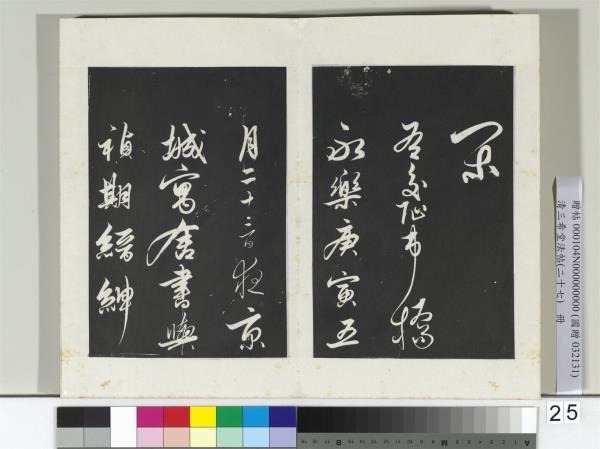 閑
右交阯市橋
永樂庚寅五
月二十三日夜京
城寓舍書與
禎期縉紳
贈帖 000104N000000000 (國贈 032131)
清三希堂法帖(二十七) 冊
25